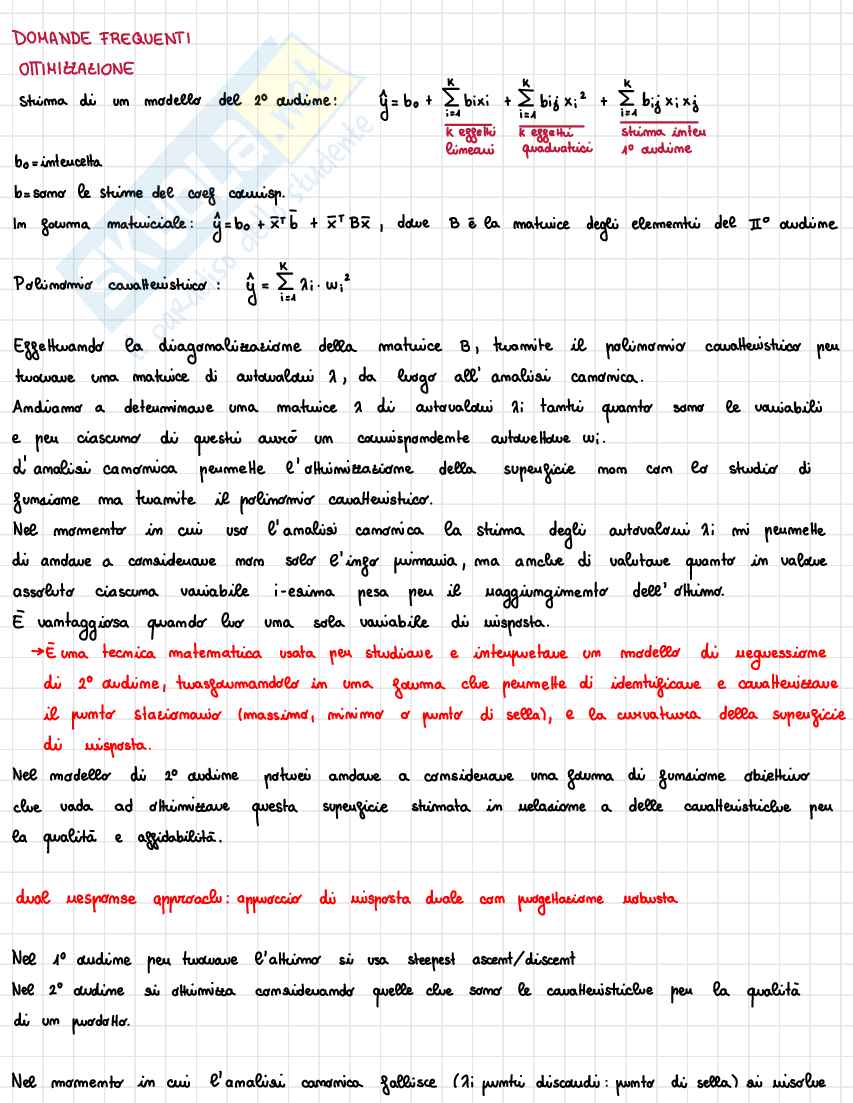 DOMANDE FREQUENTI
OTTIMIZZAZIONE
Stima di un modello del 2° ordine: ŷ = b₀ + Σ_{i=1}^{K} bixi + Σ_{i=1}^{K} bij xi² + Σ_{i=1}^{K} bij xi xj
k effetti lineari k effetti quadratici stima inter 1° ordine
b₀ = intercetta
b = sono le stime del coef corrisp.
In forma matriciale: ŷ = b₀ + x̄ᵀb̄ + x̄ᵀBx̄, dove B è la matrice degli elementi del II° ordine
Polinomio caratteristico: ŷ = Σ_{i=1}^{K} λi · wi²
Effettuando la diagonalizzazione della matrice B, tramite il polinomio caratteristico per
trovare una matrice di autovalori λ, da luogo all'analisi canonica.
Andiamo a determinare una matrice λ di autovalori λi tanti quanto sono le variabili
e per ciascuno di questi avrò un corrispondente autovettore wi.
L'analisi canonica permette l'ottimizzazione della superficie non con lo studio di
funzione ma tramite il polinomio caratteristico.
Nel momento in cui uso l'analisi canonica la stima degli autovalori λi mi permette
di andare a considerare non solo l'info primaria, ma anche di valutare quanto in valore
assoluto ciascuna variabile i-esima pesa per il raggiungimento dell'ottimo.
È vantaggiosa quando ho una sola variabile di risposta.
→ È una tecnica matematica usata per studiare e interpretare un modello di regressione
di 2° ordine, trasformandolo in una forma che permette di identificare e caratterizzare
il punto stazionario (massimo, minimo o punto di sella), e la curvatura della superficie
di risposta.
Nel modello di 2° ordine potrei andare a considerare una forma di funzione obiettivo
che vada ad ottimizzare questa superficie stimata in relazione a delle caratteristiche per
la qualità e affidabilità.
dual response approach: approccio di risposta duale con progettazione robusta
Nel 1° ordine per trovare l'ottimo si usa steepest ascent/discent
Nel 2° ordine si ottimizza considerando quelle che sono le caratteristiche per la qualità
di un prodotto.
Nel momento in cui l'analisi canonica fallisce (λi punti discordi: punto di sella) si risolve
SKUOLA.net
il paradiso dello studente